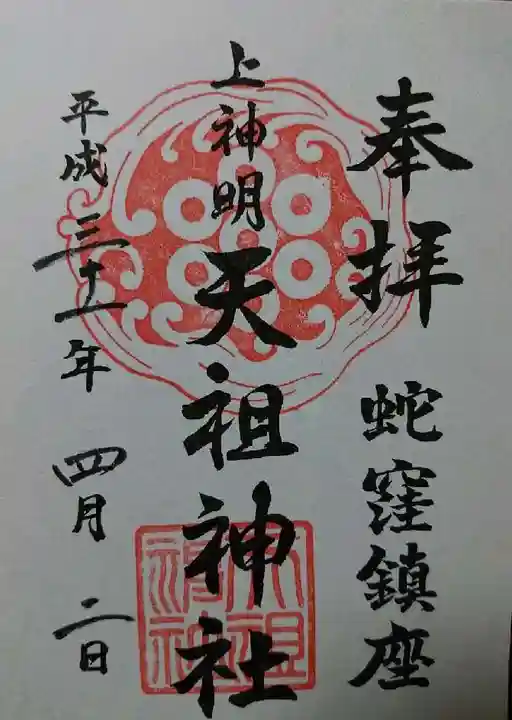 奉拝
蛇窪鎮座
上神明
天祖神社
平成三十一年 四月 二日
天祖神社